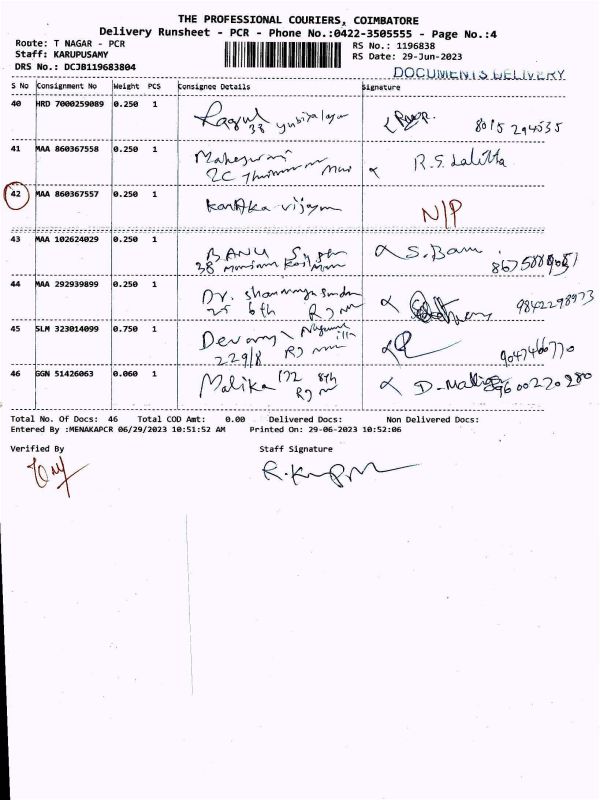 THE PROFESSIONAL COURIERS, COIMBATORE
Delivery Runsheet - PCR - Phone No.:0422-3505555 - Page No.:4
Route: T NAGAR - PCR
RS No.: 1196838
Staff: KARUPUSAMY
RS Date: 29-Jun-2023
DRS No.: DCJB119683804
DOCUMENTS DELIVERY
S No Consignment No Weight PCS Consignee Details Signature
40 HRD 7000259089 0.250 1 Ragul
38
8015294535
41 MAA 860367558 0.250 1 Maheswari R.S. Lalitha
2C
42 MAA 860367557 0.250 1 Kanaka-vijayan N/P
43 MAA 102624029 0.250 1 BANU S. Banu
38
44 MAA 292939899 0.250 1 Dr. 9842298973
25 6th
45 SLM 323014099 0.750 1
229/8 9047466770
46 GGN 51426063 0.060 1 Malika 172 8th 9600220980
Total No. Of Docs: 46 Total COD Amt: 0.00 Delivered Docs: Non Delivered Docs:
Entered By :MENAKAPCR 06/29/2023 10:51:52 AM Printed On: 29-06-2023 10:52:06
Verified By Staff Signature